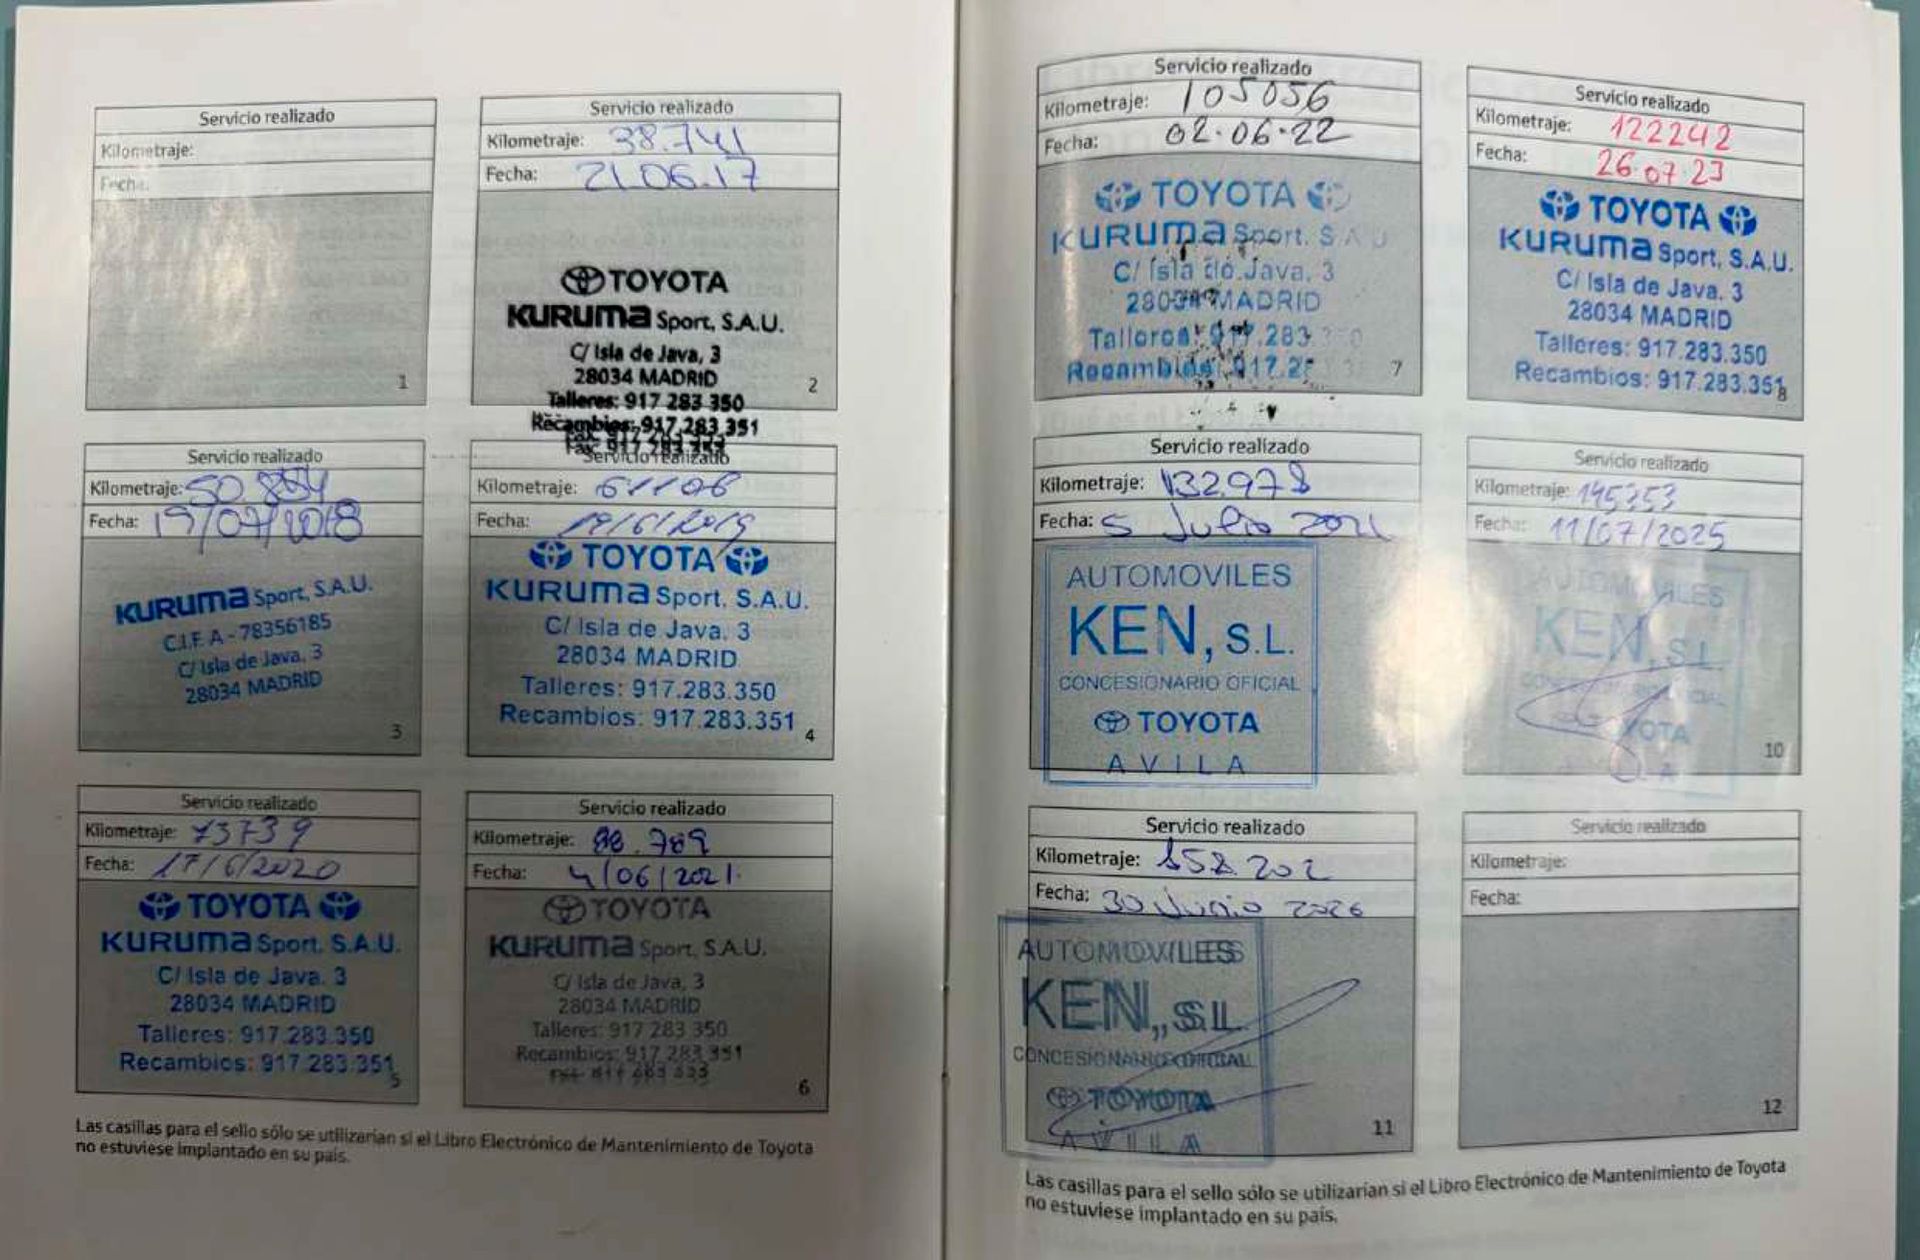 Servicio realizado
Kilometraje:
Fecha:
1
Servicio realizado
Kilometraje: 38.741
Fecha: 21.06.17
TOYOTA
KURUMA Sport, S.A.U.
C/ Isla de Java, 3
28034 MADRID
Talleres: 917 283 350
Recambios: 917 283 351
2
Servicio realizado
Kilometraje: 50.854
Fecha: 19/07/2018
KURUMA Sport, S.A.U.
C.I.F. A - 78356185
C/ Isla de Java, 3
28034 MADRID
3
Servicio realizado
Kilometraje: 61106
Fecha: 19/6/2019
TOYOTA
KURUMA Sport, S.A.U.
C/ Isla de Java, 3
28034 MADRID
Talleres: 917.283.350
Recambios: 917.283.351
4
Servicio realizado
Kilometraje: 73739
Fecha: 17/6/2020
TOYOTA
KURUMA Sport, S.A.U.
C/ Isla de Java, 3
28034 MADRID
Talleres: 917.283.350
Recambios: 917.283.351
5
Servicio realizado
Kilometraje: 88.789
Fecha: 4/06/2021.
TOYOTA
KURUMA Sport, S.A.U.
C/ Isla de Java, 3
28034 MADRID
Talleres: 917 283 350
Recambios: 917 283 351
6
Las casillas para el sello sólo se utilizarían si el Libro Electrónico de Mantenimiento de Toyota
no estuviese implantado en su país.
Servicio realizado
Kilometraje: 105056
Fecha: 02.06.22
TOYOTA
KURUMA Sport. S.A.U
C/ Isla de Java. 3
28034 MADRID
Talleres: 917.283.350
Recambios: 917.28
7
Servicio realizado
Kilometraje: 122242
Fecha: 26.07.23
TOYOTA
KURUMA Sport, S.A.U.
C/ Isla de Java. 3
28034 MADRID
Talleres: 917.283.350
Recambios: 917.283.351
8
Servicio realizado
Kilometraje: 132978
Fecha: 5 Julio 2024
AUTOMOVILES
KEN, S.L.
CONCESIONARIO OFICIAL
TOYOTA
AVILA
Servicio realizado
Kilometraje: 145353
Fecha: 11/07/2025
AUTOMOVILES
KEN, S.L
CONCESIONARIO OFICIAL
TOYOTA
10
Servicio realizado
Kilometraje: 158.202
Fecha: 30 Junio 2026
AUTOMOVILES
KEN, S.L.
CONCESIONARIO OFICIAL
TOYOTA
AVILA
11
Servicio realizado
Kilometraje:
Fecha:
12
Las casillas para el sello sólo se utilizarían si el Libro Electrónico de Mantenimiento de Toyota
no estuviese implantado en su país.